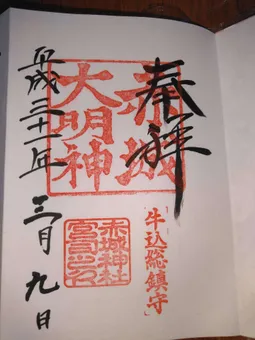 奉拝
赤城
大明神
「牛込総鎮守」
赤城神社
宮司之印
平成三十一年三月九日